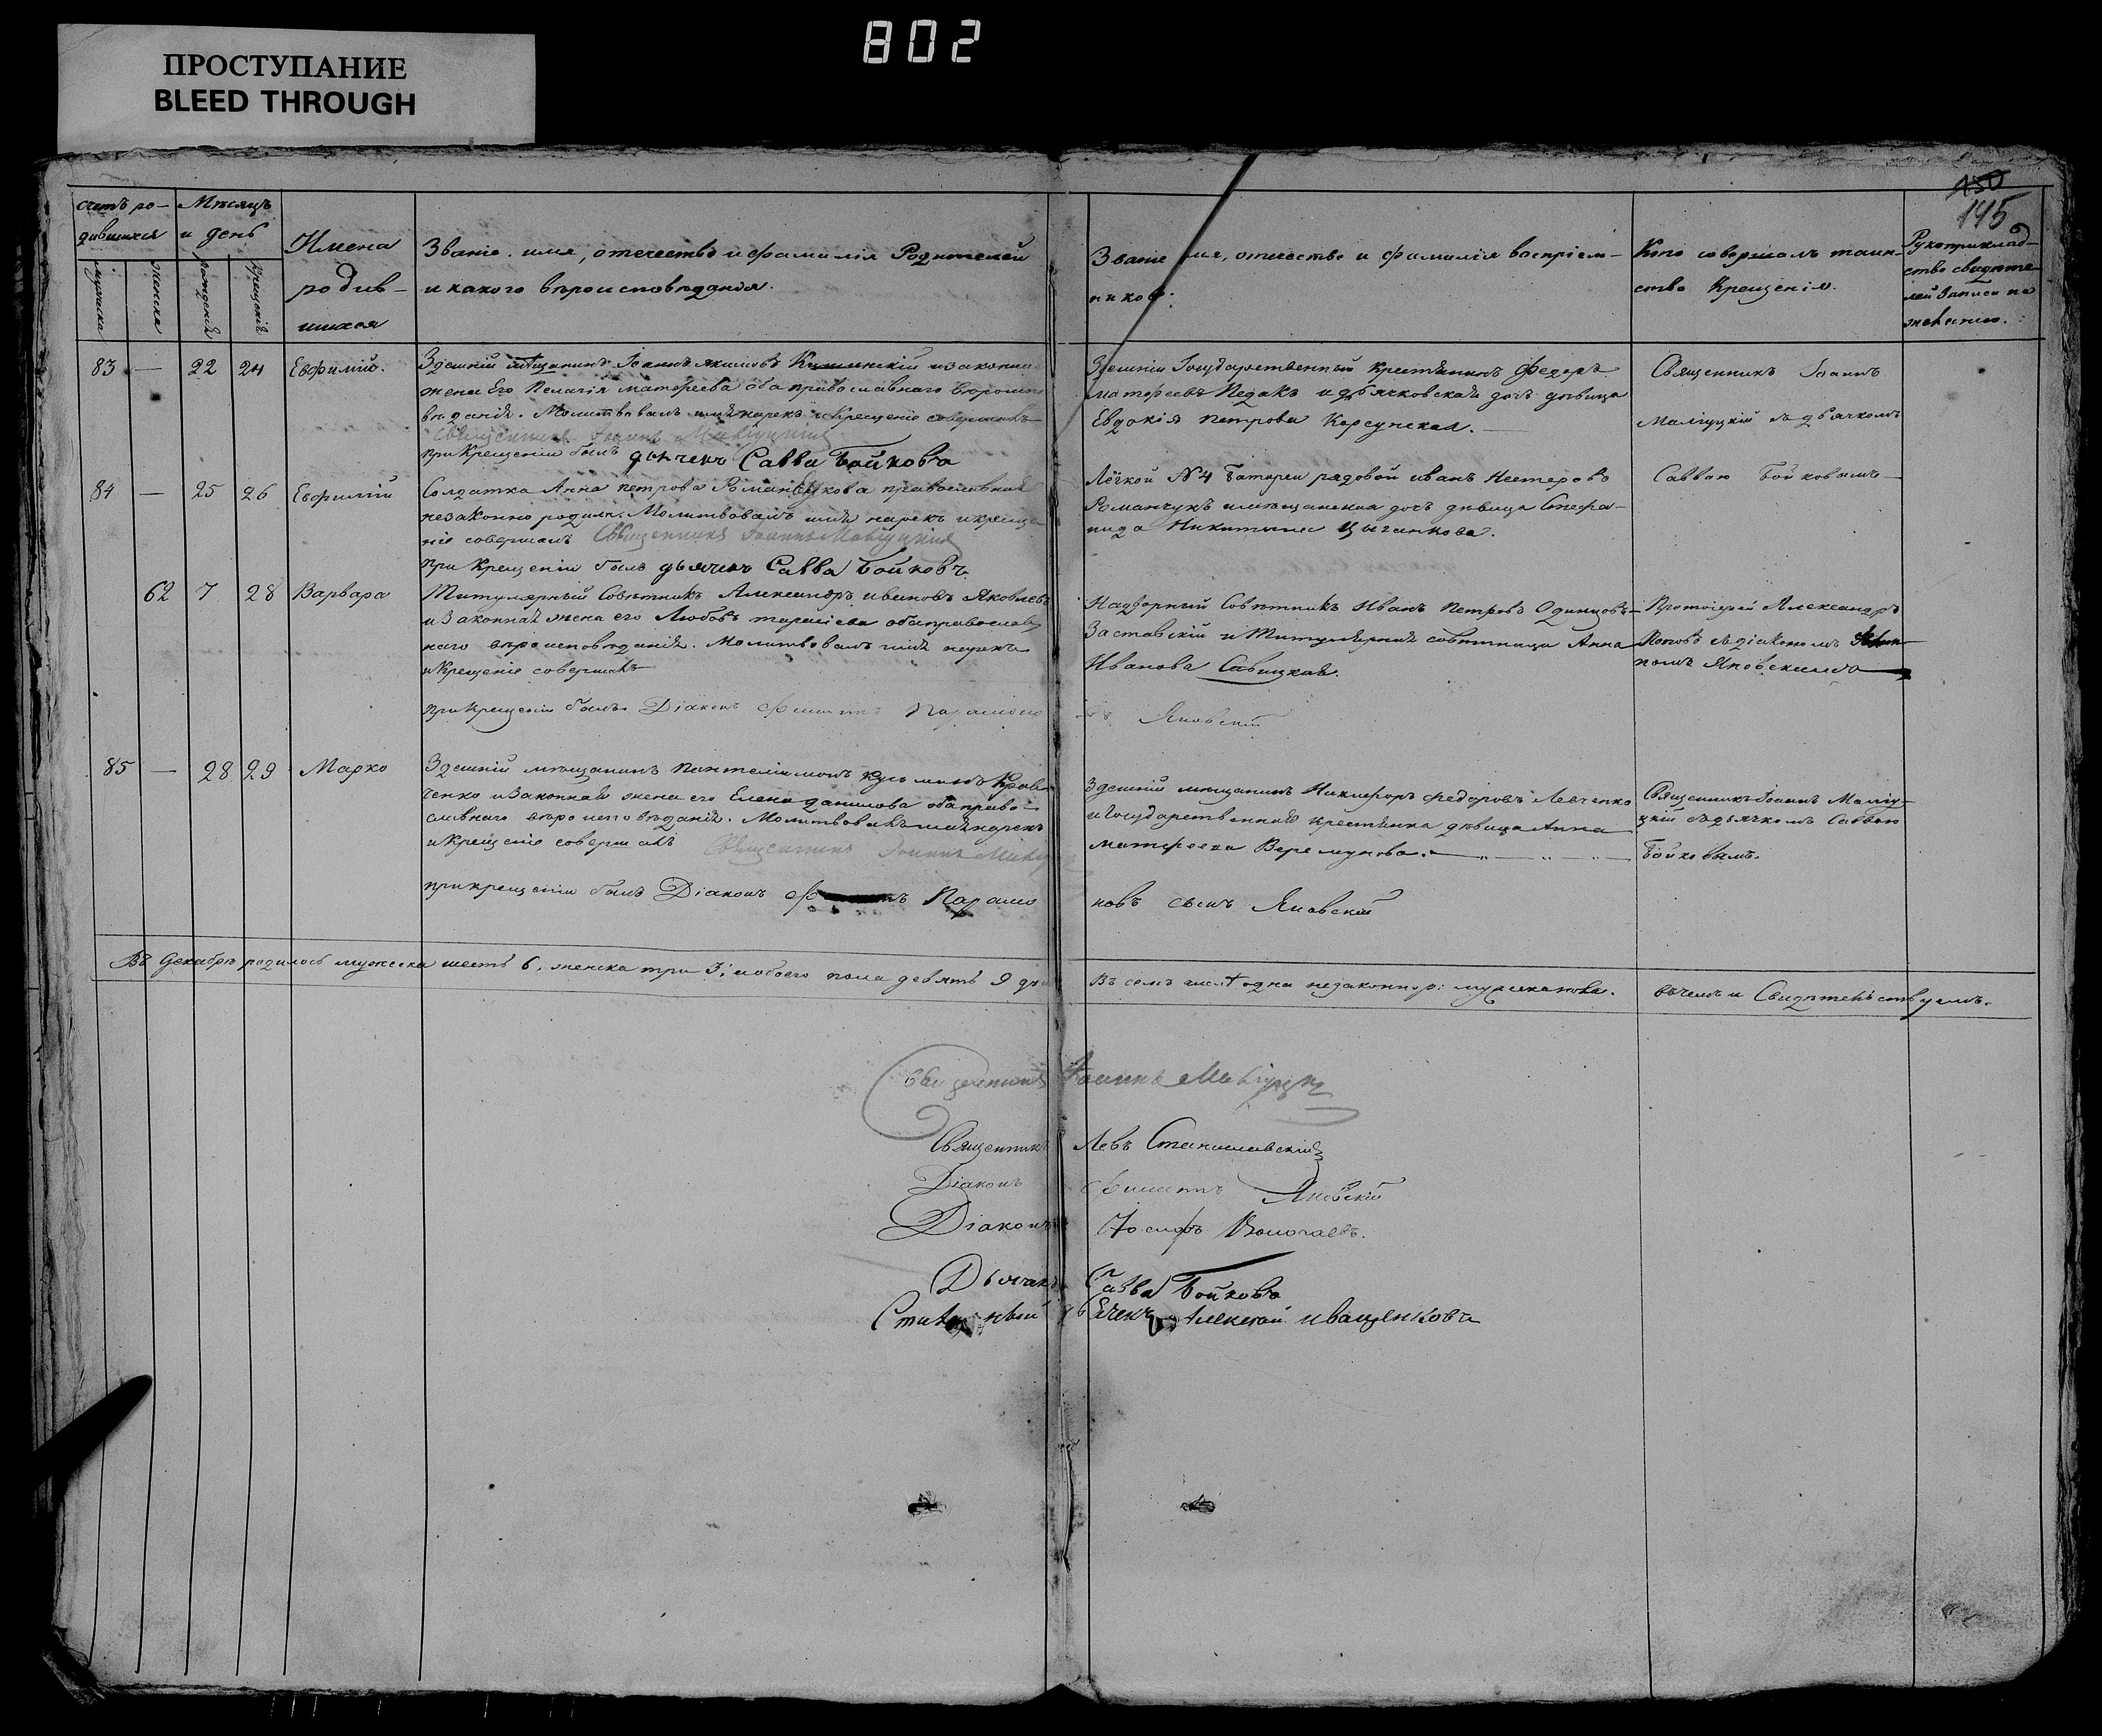 ПРОСТУПАНИЕ
BLEED THROUGH
802
150
145
счетъ ро-
дившихся
мужска
женска
Мѣсяцъ
и день
рожденія
крещенія
Имена
родив-
шихся
Званіе, имя, отечество и фамилія Родителей
и какого вѣроисповѣданія.
Званіе имя, отчество и фамилія воспріем-
никовъ.
Кто совершалъ таин-
ство Крещенія.
Рукоприклад-
ство свидѣте-
лей записи по
желанію.
83 — 22 24 Евфимій.
Здешній мѣщанинъ Іоаннъ Якимовъ и законная
жена Его Пелагія Матфеева оба православнаго вѣроиспо
вѣданія. Молитвовалъ имя нарекъ и Крещеніе совершилъ
Священникъ Іоаннъ
при Крещеніи былъ дьячекъ Савва Бойковъ
Здешній Государственный Крестьянинъ Федоръ
Матфеевъ Педакъ и дьячковская дочь дѣвица
Евдокія Петрова Корсунская.
Священникъ Іоаннъ
съ дьячкомъ
84 — 25 26 Евфимій
Солдатка Анна Петрова Романчукова православная
незаконно родила. Молитвовалъ имя нарекъ и креще
ніе совершалъ Священникъ Іоаннъ
при Крещеніи былъ дьячекъ Савва Бойковъ.
Лёгкой №4 Батареи рядовой Иванъ Нестеровъ
Романчукъ и мѣщанская дочь дѣвица Стефа-
нида Никитина Цыганкова.
Саввою Бойковымъ
62 7 28 Варвара
Титулярный Совѣтникъ Александръ Ивановъ Яковлевъ
и Законная жена его Любовъ Тарасіева оба православ
наго вѣроисповѣданія. Молитвовалъ имя нарекъ
и Крещеніе совершалъ
при крещеніи былъ Діаконъ Филиппъ Парамоно
въ Яновскій
Надворный Совѣтникъ Иванъ Петровъ Одинцовъ-
Заставскій и Титулярная совѣтница Анна
Иванова Савицкая.
Протоіерей Александръ
Поповъ съ діакономъ Филип
помъ Яновскимъ
85 — 28 29 Марко
Здешній мѣщанинъ Пантелимонъ Кузьминъ Крав
ченко и Законная жена его Елена Данилова оба право-
славнаго вѣроисповѣданія. Молитвовалъ имя нарекъ
и Крещеніе совершалъ Священникъ Іоаннъ
при крещеніи былъ Діаконъ Парамо
новъ сынъ Яновскій
Здешній мѣщанинъ Никифоръ Федоровъ Левченко
и Государственная крестьянка дѣвица Анна
Матфеева Веремунова.
Священникъ Іоаннъ
съ дьячкомъ Саввою
Бойковымъ.
Въ Декабрѣ родилось мужеска шесть 6, женска три 3; и обоего пола девять 9 ду
Въ семъ числѣ одна незаконнор: мужеск пола.
въ чемъ и Свидѣтельствуемъ.
Священникъ Іоаннъ
Священникъ Левъ Станиславскій
Діаконъ Филиппъ Яновскій
Діаконъ Іосифъ
Дьячекъ Савва Бойковъ
дьячекъ Алексѣй Иващенковъ